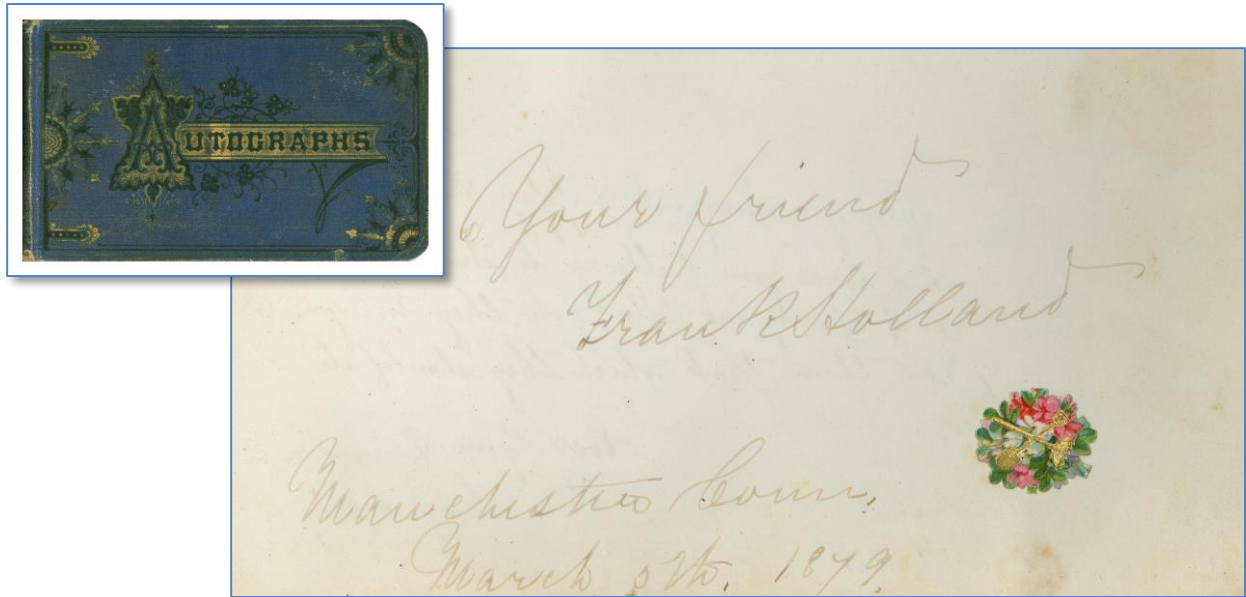 AUTOGRAPHS
Your friend
Frank Holland
Manchester Conn.
March 5th, 1879.